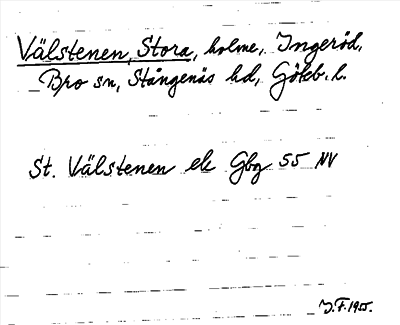 Välstenen, Stora, holme, Ingeröd,
Bro sn, Stångenäs hd, Göteb. l.
St. Välstenen ek Gbg 55 NV
J.F. 1955.